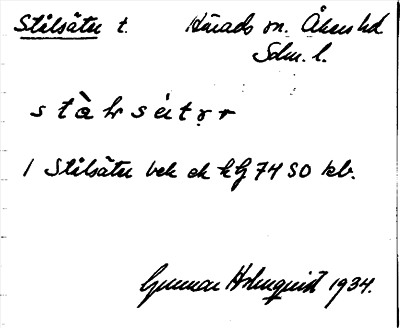 Stilsäter t. Härads sn. Åkers hd
Sdm. l.
1 Stilsäter bek ek kg 74 SO kb.
Gunnar Holmquist 1934.